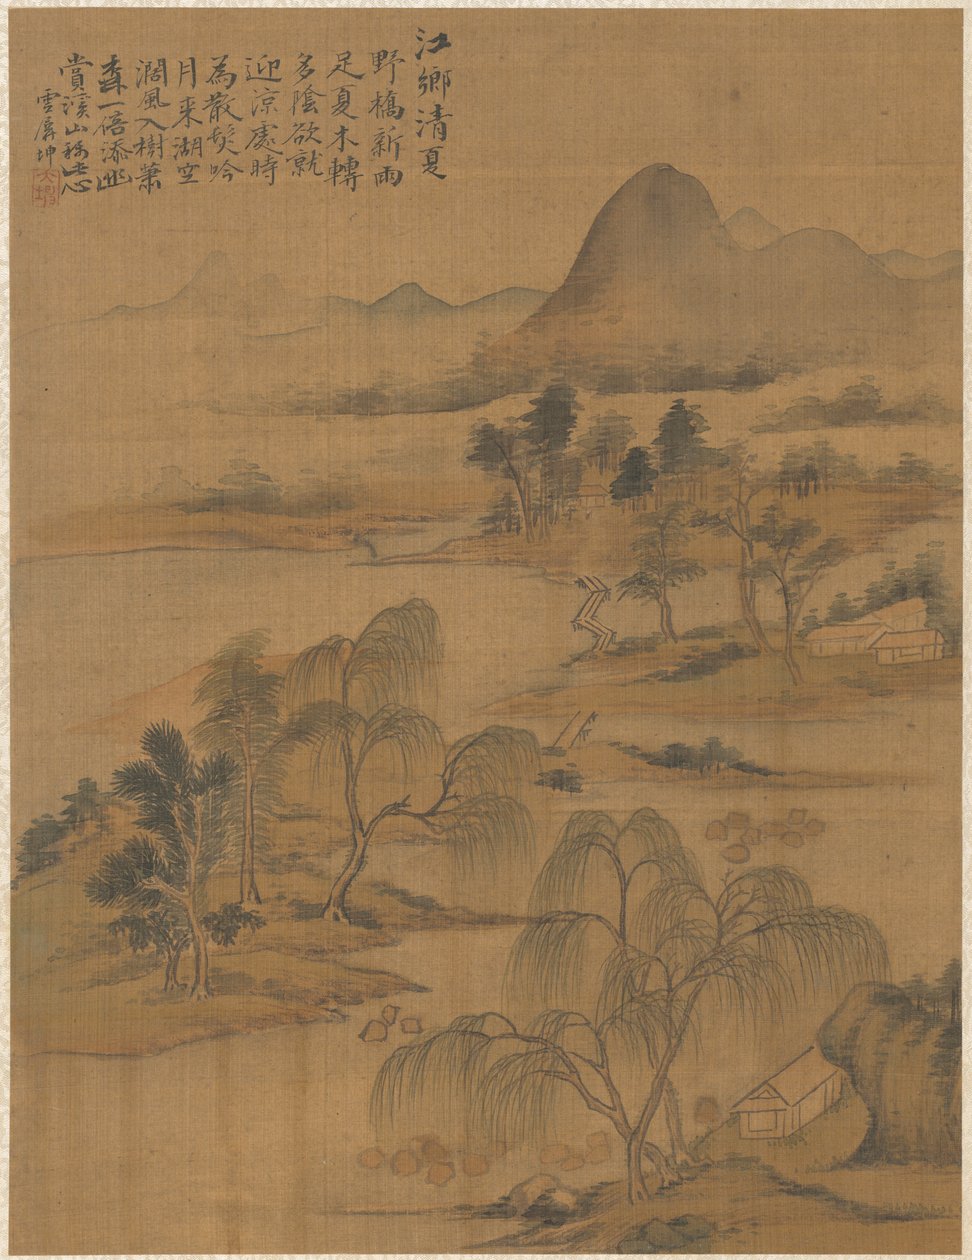 江鄉清夏
野橋新雨
足夏木轉
多陰欲就
迎涼處時
為散髮吟
月來湖空
濶風入樹蕭
森一倍添幽
賞溪山稱此心
雲屏坤